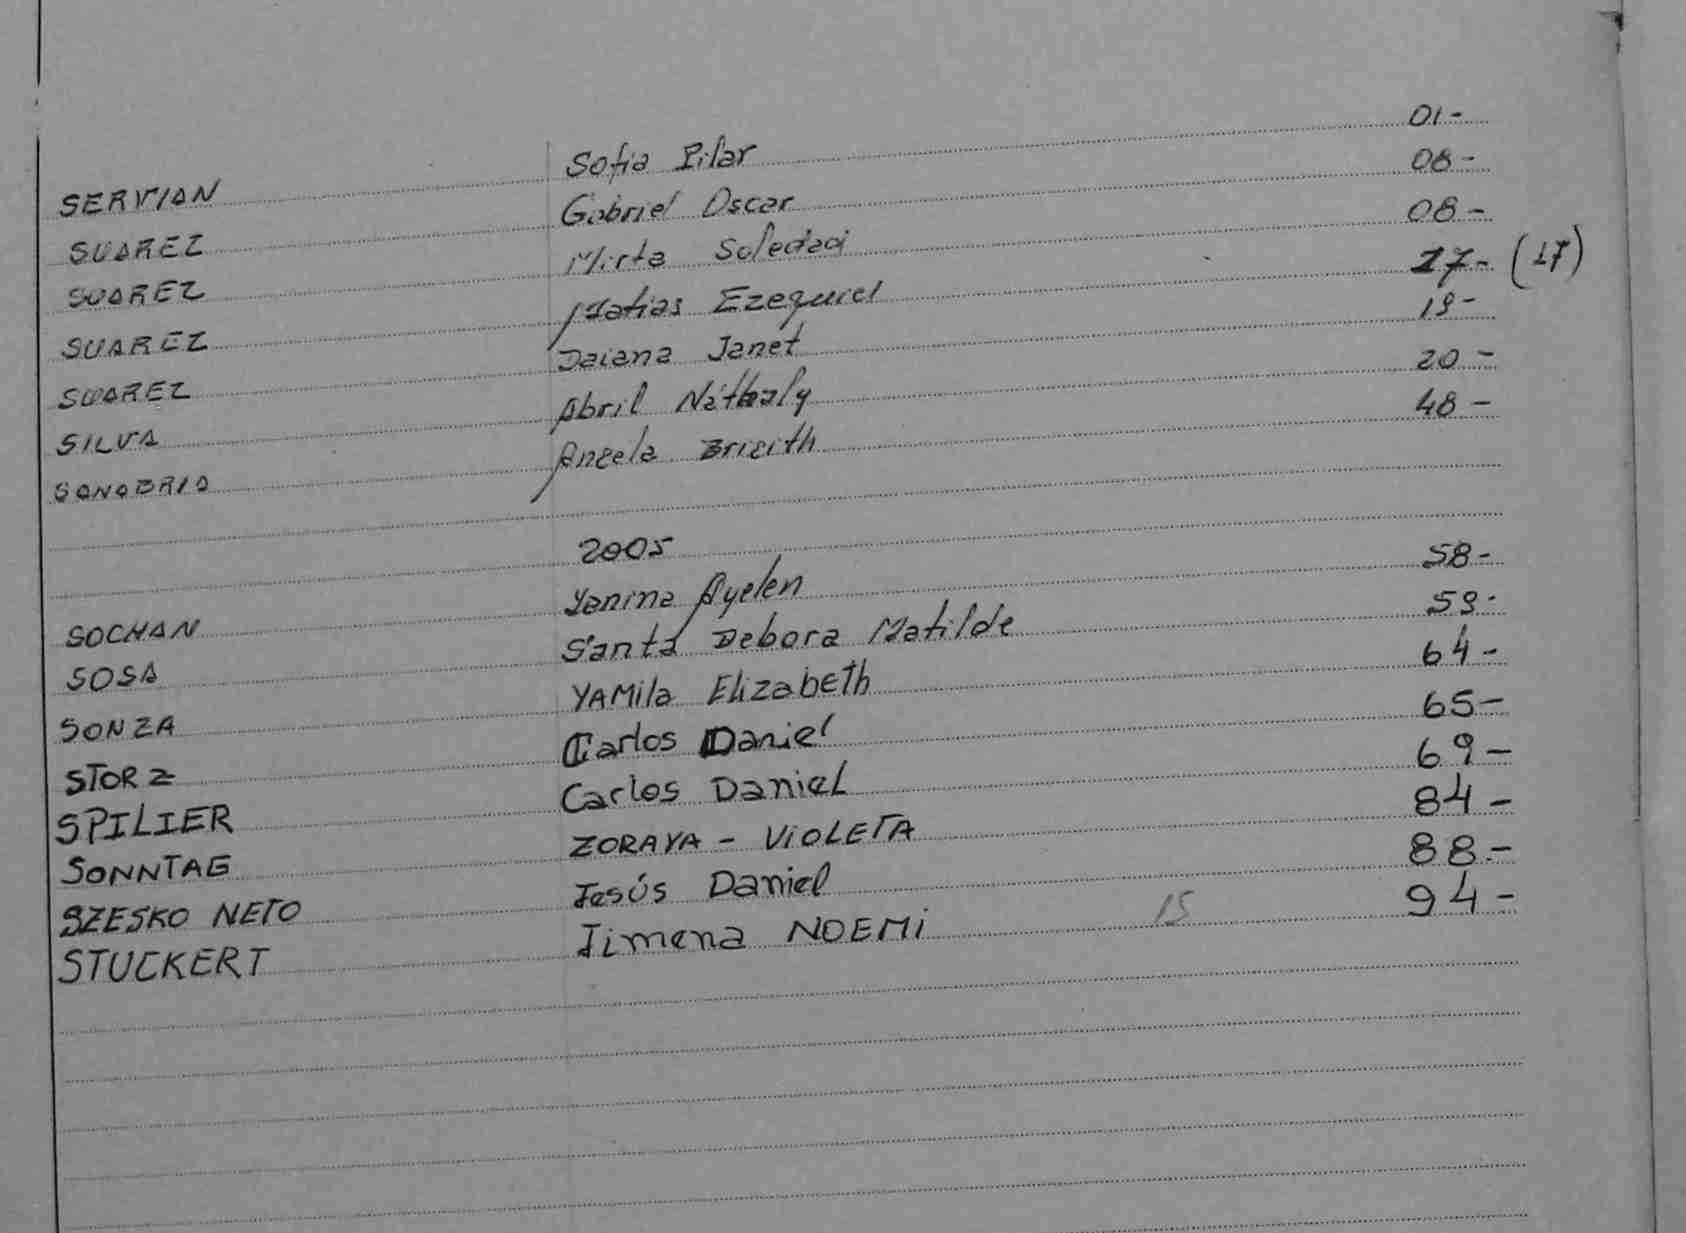 SERVIAN Sofia Pilar 01-
SUAREZ Gabriel Oscar 08-
SUAREZ Mirta Soledad 08-
SUAREZ Matias Ezequiel 17- (17)
SUAREZ Daiana Janet 19-
SILVA Abril Náthaly 20-
SANABRIA Angela Brigith 48-
2005
SOCHAN Yanina Ayelen 58-
SOSA Santa Debora Matilde 59-
SONZA YAMila Elizabeth 64-
STORZ Carlos Daniel 65-
SPILIER Carlos DanieL 69-
SONNTAG ZORAYA - VIOLETA 84-
SZESKO NETO Jesús Daniel 88-
STUCKERT Jimena NOEMi 15 94-